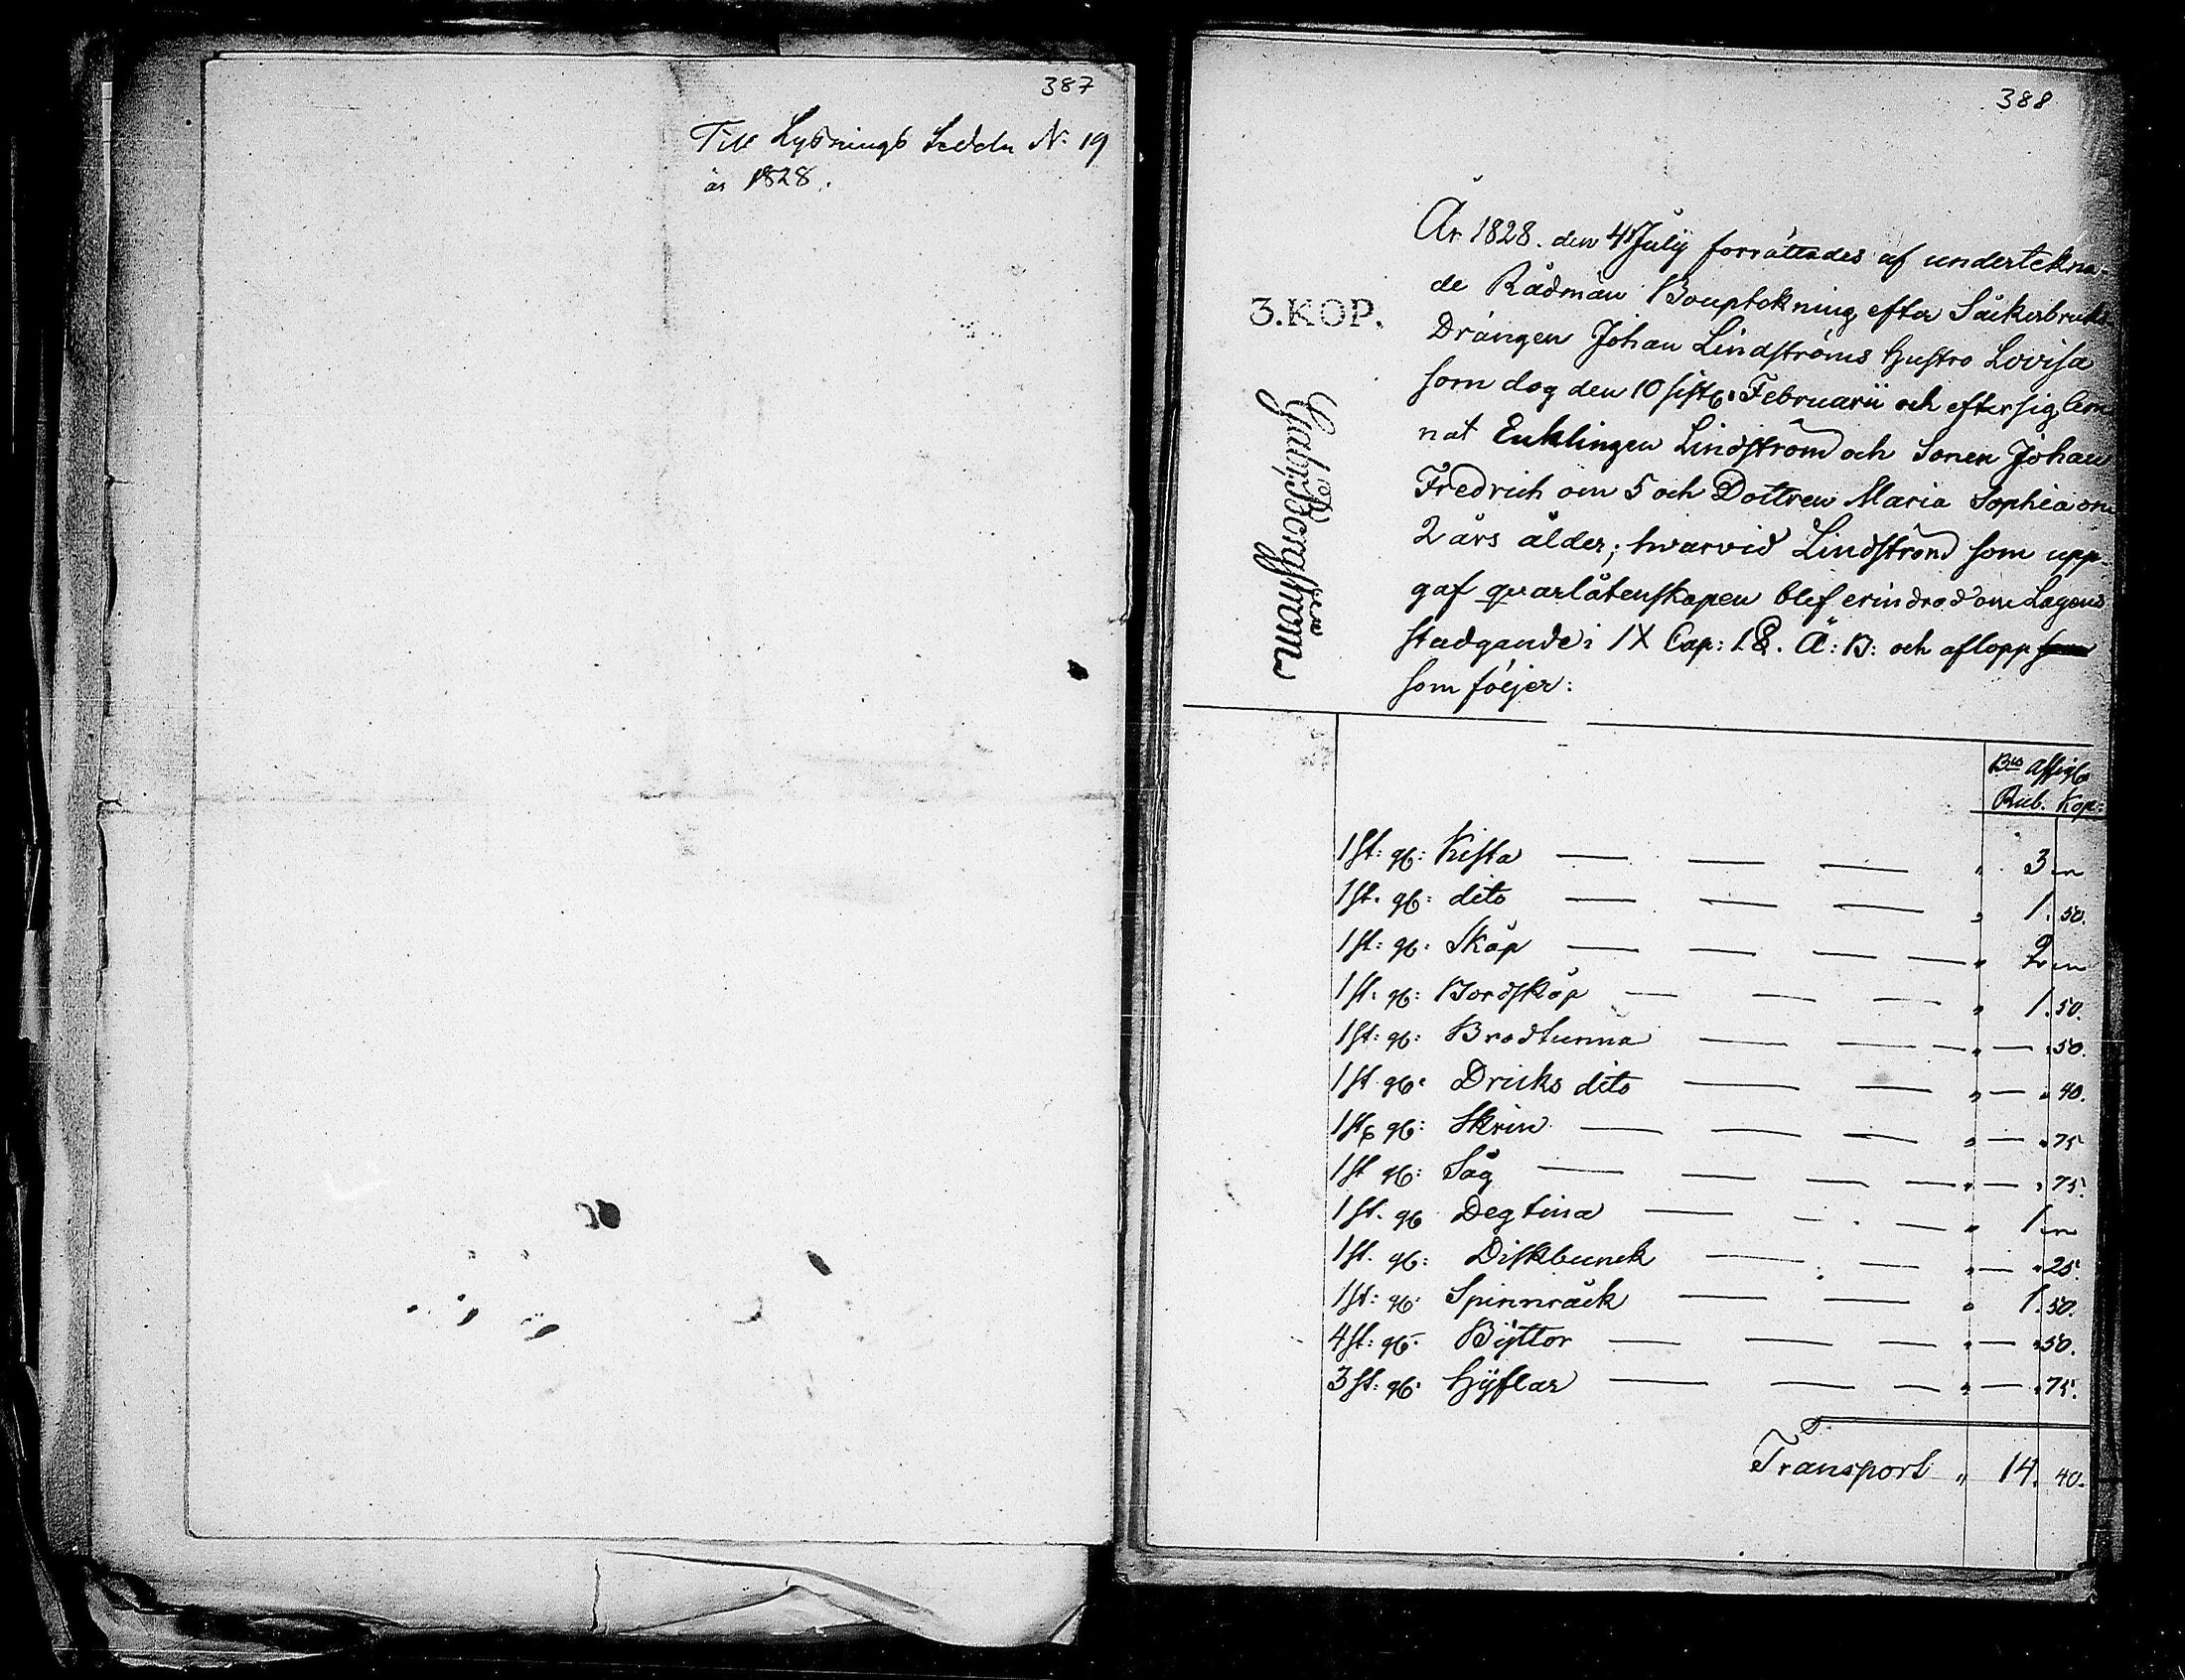 387
Till Lysnings Sedeln N: 19
år 1828.
388
3.KOP.
År 1828. den 4 July forrättades af undertekna-
de Rådman Bouptekning efter Såckerbruks
Drängen Johan Lindströms Hustro Lovisa
som dog den 10 sistl. Februarii och efter sig lem
nat Enklingen Lindström och Sonen Johan
Fredrich om 5 och Dottren Maria Sophia om
2 års ålder; hwarvid Lindström som upp-
gaf qvarlåtenskapen blef erindrad om Lagens
stadgande i IX Cap: 1 §. Ä: B: och aflopp
som följer:
Bco Assigr
Rub. Kop:
1 st: gl: Kista " 3 "
1 st. gl: dito " 1. 50.
1 st: gl: Skåp " 2 "
1 st. gl: Bordskåp " 1. 50.
1 st: gl: Brödtunna " — " 50.
1 st gl: Dricks dito " — " 40.
1 st gl: Skrin " — " 75
1 st gl: Såg " — " 75.
1 st. gl Degtina " 1 "
1 st. gl: Diskbunck " — " 25.
1 st: gl: Spinnråck " 1. 50.
4 st: gl: Byttor " — " 50.
3 st: gl: Hyflar " — " 75.
Transport " 14. 40.